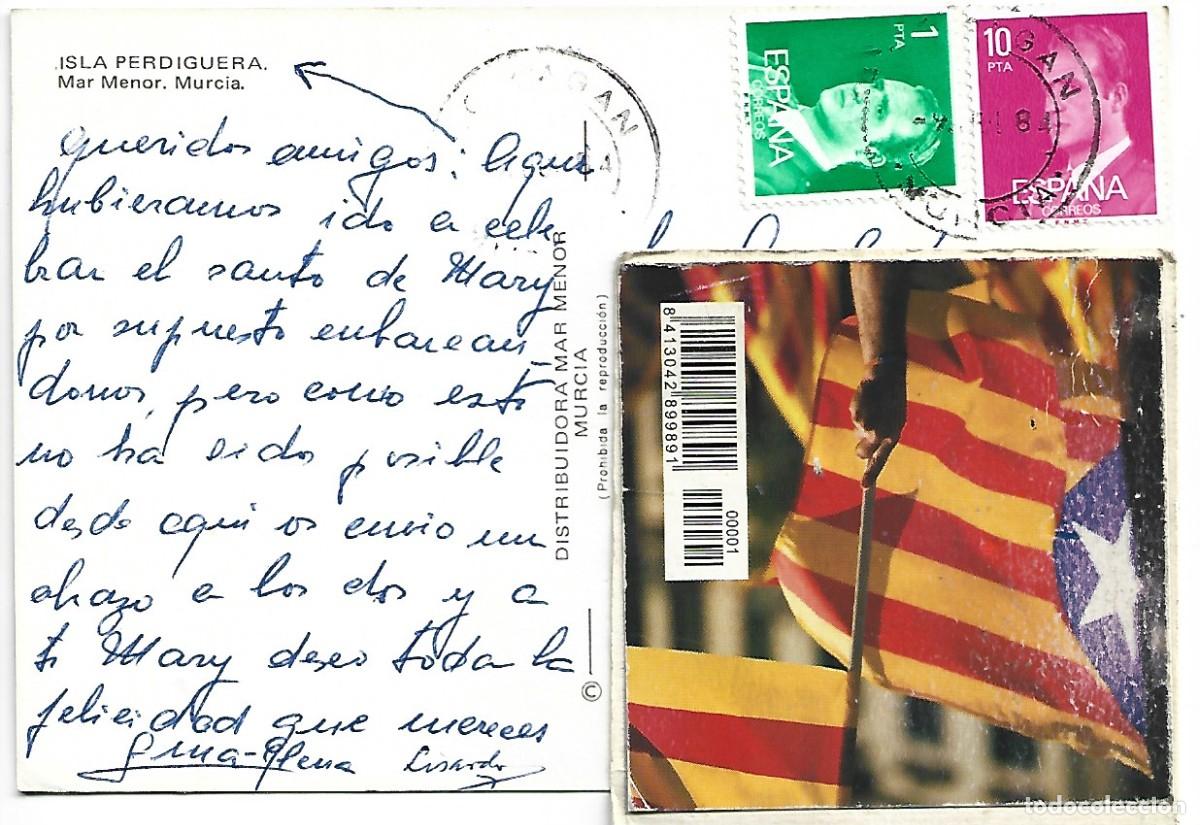 ISLA PERDIGUERA.
Mar Menor. Murcia.
queridos amigos: Aqui
hubieramos ido a cele
brar el santo de Mary
por supuesto embarcan_
donos, pero como esto
no ha sido posible
desde aqui os envio un
abrazo a los dos y a
ti Mary deseo toda la
felicidad que mereces
Gema-Elena Lisardo
DISTRIBUIDORA MAR MENOR
MURCIA
(Prohibida la reproducción)
©
1
PTA
ESPAÑA
CORREOS
F.N.M.T.
10
PTA
ESPAÑA
CORREOS
F.N.M.T.
MURCIA
8413042899891
00001
todocoleccion